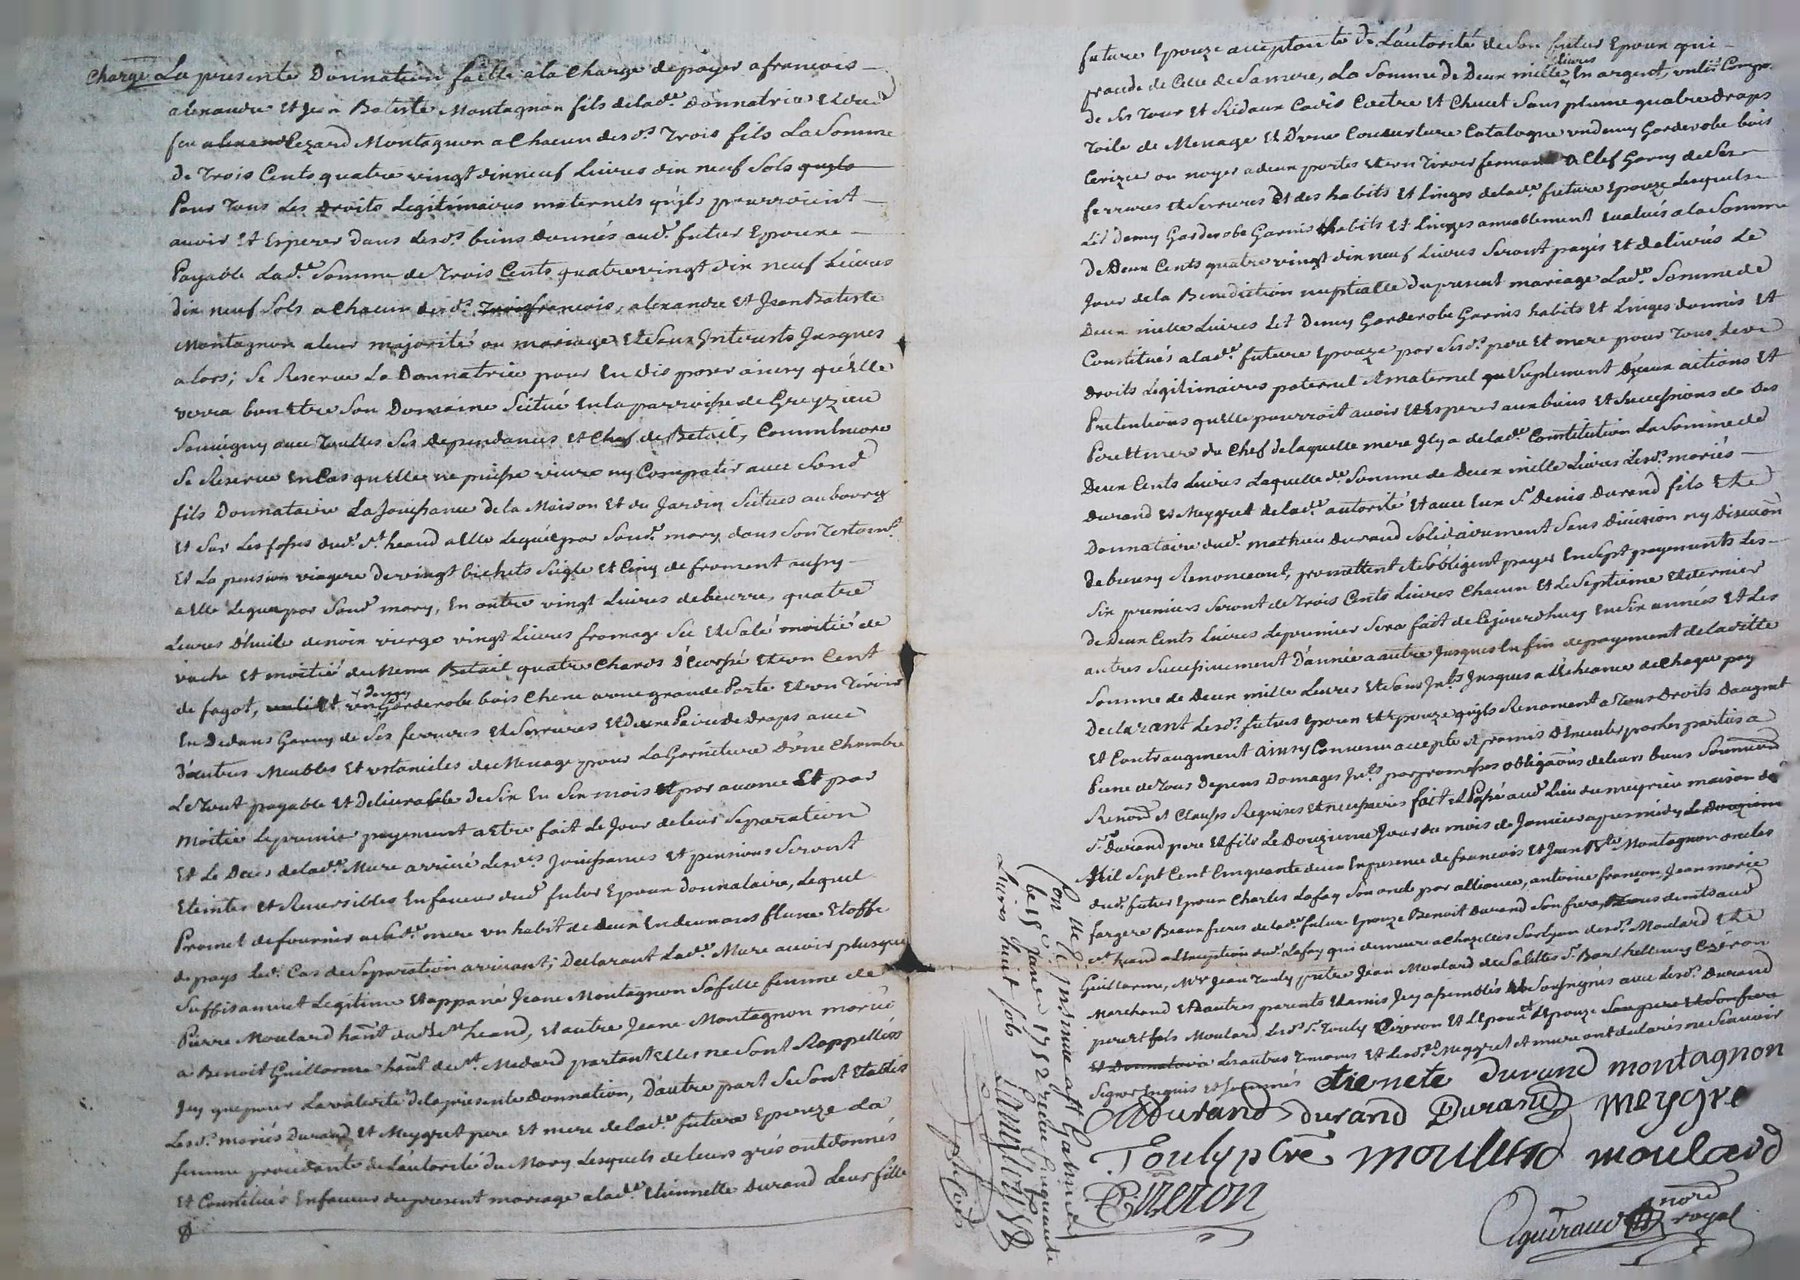 charge La presente Donnation faitte a la charge de payer a francois
alexandre Et Jean Batiste Montagnon fils de lad.e Donnatrice Et dud
feu Cezard Montagnon a Chacun desd.s Trois fils La Somme
De Trois Cents quatre vingt dix neuf Livres dix neuf Sols
Pour Tous Les Droits Legitimaires maternels qu'ils pourroient
avoir Et Esperer dans Lesd.s biens donnés aud.t futur Epoux
Payable Lad.e Somme de Trois Cents quatre vingt dix neuf Livres
dix neuf Sols a Chacun desd.s francois, alexandre Et Jean Batiste
Montagnon a leur majorité ou mariage Et Sans Interests Jusques
alors; Se Reserve La Donnatrice pour En disposer ainsy qu'Elle
verra bon Etre Son Domaine Scitué En la parroisse de Greyzieu
Souvigny avec Touttes Ses dependances Et Chef de Betail, Comm'Encore
Se Reserve En Cas qu'Elle ne puisse vivre ny Compatir avec Sond
fils Donnataire La Jouissance de la Maison Et du Jardin Scitués au bourg
Et Sur Les fosses dud. St heand a Elle Legué par Sond. mary dans Son Testam.t
Et La pension viagere de vingt bichets Seigle Et Cinq de froment aussy
a Elle Legué par Sond mary, En outre vingt Livres de beurre, quatre
Livres d'huile de noix vierge vingt Livres fromage Sec Et Salé moitié de
vache Et moitié de Menu Betail quatre Chards d'Ecorse Et un Cent
de fagot, un demy Garderobe bois Chene a une grande Porte Et un Tiroir
En Dedans Garny de Ses ferrures Et Serrures Et deux Paires de Draps avec
d'autres Meubles Et ustanciles de Menage pour La Garniture D'une Chambre
Le Tout payable Et delivrable de Six En Six mois Et par avance Et par
moitié Le premier payement a Etre fait Le Jour de leur Separation
Et Le Deces de lad.e Mere arrivé Lesd.es Jouissances Et pensions Seront
Eteintes Et Reversibles En faveur dud. futur Epoux Donnataire, Lequel
Promet de fournir a lad.e mere un habit de deux En deux ans
de pays Lad. Cas de Separation arrivant; Declarant Lad.e Mere avoir plus que
Suffisament Legitimé Et appané Jeane Montagnon Sa fille femme de
Pierre Moulard hant dud. St heand, Et autre Jeane Montagnon mariée
a Benoit Guillarme hant de St Medard partant Elles ne Sont Rappellées
Icy que pour La validité de la presente Donnation, D'autre part Se Sont Etablis
Lesd.s mariés Durand Et Meygret pere Et mere de lad.e future Epouze La
femme procedante de l'autorité du Mary Lesquels de leurs grés ont donnés
Et Constitués En faveur du present mariage a lad.e Etiennette Durand Leur fille
future Epouze acceptante De L'autorité de Son futur Epoux qui
procede de Celle de Sa mere, La Somme de Deux mille livres En argent, un lit Comp.
de Ses Tour Et Ridaux Cadis Coetre Et Chevet Sans plume quatre draps
Toile de Menage Et D'une Couverture Catalogne un demy Garderobe bois
Cerizier ou noyer a deux portes Et un Tiroir fermant a Clef Garny de Ses
ferrures Et Serrures Et des habits Et Linges de lad.e future Epouze Lesquels
Lit Demy Garderobe Garnis habits Et Linges amiablement Evalués a la Somme
de Deux Cents quatre vingt dix neuf Livres Seront payés Et delivrés Le
Jour de la Benediction nuptialle Du present mariage Lad.e Somme de
Deux mille Livres Lit Demy Garderobe Garnis habits Et Linges donnés Et
Constitués a lad.e future Epouze par Sesd.s pere Et mere pour Tous
Droits Legitimaires paternel Et maternel que Suplement D'iceux actions Et
Pretentions qu'Elle pourroit avoir Et Esperer aux biens Et Successions de Ses
Pere Et mere Du Chef de laquelle mere Il y a de lad.e Constitution La Somme de
Deux Cents Livres Laquelle d.e Somme de Deux mille Livres Lesd.s mariés
Durand Et Meygret de lad.e autorité Et avec Eux S.r Denis Durand fils Et
Donnataire dud. mathieu Durand Solidairement Sans Division ny Discution
de biens y Renonceant, promettent Et S'obligent payer En Sept payements Les
Six premiers Seront de Trois Cents Livres Chacun Et Le Septieme Et dernier
de Deux Cents Livres Le premier Sera fait de Cejourdhuy En Six années Et Les
autres Successivement D'année a autre Jusques En fin de payement de laditte
Somme de Deux mille Livres Et Sans Int.ts Jusques a l'Echeance de Chaque pay
Declarant Lesd.s futurs Epoux Et Epouze qu'ils Renoncent a Tous Droits Daugmt
Et Contraugment ainsy Convenu accepté Et promis observer par les parties a
Peine de Tous Depens Domages Int.ts par promesses obligaons de leurs biens Soumission
Renond Et Clauses Requises Et necessaires fait Et Passé aud. Lieu du meyrieu maison de
S.r Durand pere Et fils Le Douzieme Jour du mois de Janvier apres midy
Mil Sept Cent Cinquante deux En presence de francois Et Jean B.te Montagnon oncles
dud. futur Epoux Charles Lafay Son oncle par alliance, antoine françon, Jean marie
fargere Beaux freres de lad.e future Epouze Benoit Durand Son frere, Tous demts aud
St heand a L'exception dud. Lafay qui demeure a Chazelles Sur Lyon desd.s Moulard Et
Guillarme, M.re Jean Touly prêtre Jean Moulard S.r Barthellemy Cizeron
Marchand Et d'autres parents Et amis Icy assemblés Soussignés avec Lesd.s Durand
pere Et fils Moulard, Lesd. S.rs Touly Cizeron Et L'Epoux Et L'Epouze
Les autres Temoins Et Lesd.s Meygret Et mere ont declarés ne Scavoir
Signer Enquis Et Sommés Etienete durand montagnon
Durand durand Durand Meygre
Touly ptre moulard moulard
Cizeron
Agueraud nore royal
Con.llé & Insinué a St Galmier
Le 15 Janvier 1752 Recu Cinquante
Livres huit Sols